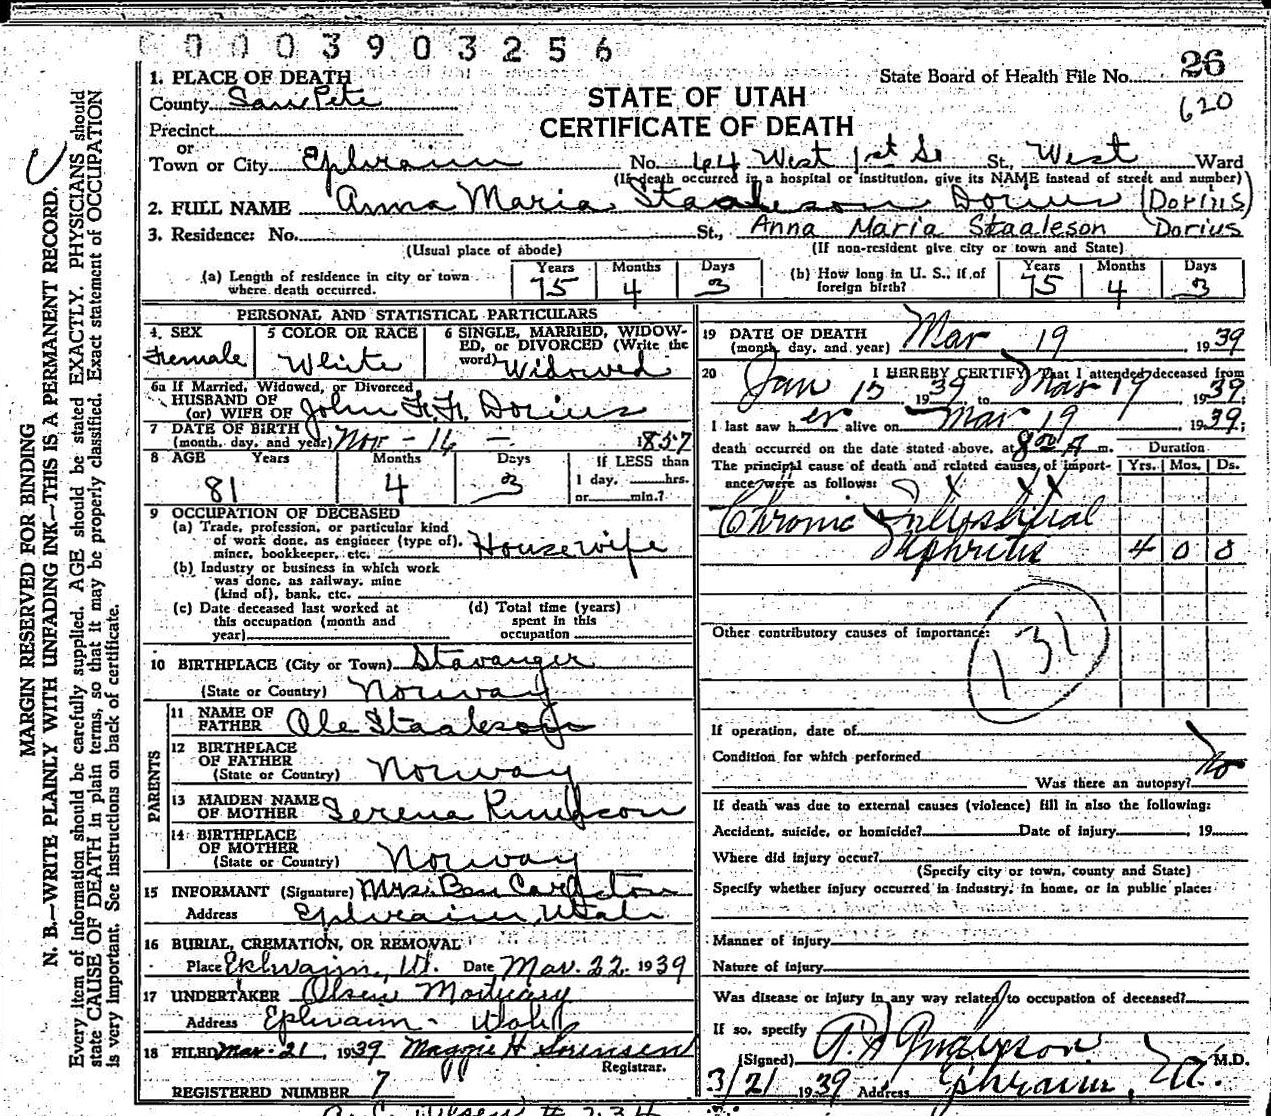 0003903256
State Board of Health File No. 26
620
STATE OF UTAH
CERTIFICATE OF DEATH
1. PLACE OF DEATH
County SanPete
Precinct
or
Town or City Ephraim No. 64 West 1st So St., West Ward
(If death occurred in a hospital or institution, give its NAME instead of street and number)
2. FULL NAME Anna Maria Staaleson Dorius (Dorius)
3. Residence: No. St., Anna Maria Staaleson Dorius
(Usual place of abode) (If non-resident give city or town and State)
(a) Length of residence in city or town where death occurred. Years 75 Months 4 Days 3
(b) How long in U. S., if of foreign birth? Years 75 Months 4 Days 3
PERSONAL AND STATISTICAL PARTICULARS
4. SEX Female
5 COLOR OR RACE White
6 SINGLE, MARRIED, WIDOWED, or DIVORCED (Write the word) Widowed
6a If Married, Widowed, or Divorced
HUSBAND OF
(or) WIFE OF John F. F. Dorius
7 DATE OF BIRTH
(month, day, and year) Nov - 16 - 1857
8 AGE Years 81 Months 4 Days 3 If LESS than 1 day, hrs. or min.?
9 OCCUPATION OF DECEASED
(a) Trade, profession, or particular kind of work done, as engineer (type of), miner, bookkeeper, etc. Housewife
(b) Industry or business in which work was done, as railway, mine (kind of), bank, etc.
(c) Date deceased last worked at this occupation (month and year)
(d) Total time (years) spent in this occupation
10 BIRTHPLACE (City or Town) Stavanger
(State or Country) Norway
PARENTS
11 NAME OF FATHER Ole Staaleson
12 BIRTHPLACE OF FATHER
(State or Country) Norway
13 MAIDEN NAME OF MOTHER Serena
14 BIRTHPLACE OF MOTHER
(State or Country) Norway
15 INFORMANT (Signature) Mrs. Ben Carlston
Address Ephraim, Utah
16 BURIAL, CREMATION, OR REMOVAL
Place Ephraim, Ut. Date Mar. 22. 1939
17 UNDERTAKER Olsen Mortuary
Address Ephraim - Utah
18 FILED Mar. 21, 1939 Maggie H Sorensen
Registrar.
REGISTERED NUMBER 7
19 DATE OF DEATH
(month, day, and year) Mar 19, 1939
20 I HEREBY CERTIFY, That I attended deceased from
Jan 15 1939, to Mar 19 1939;
I last saw her alive on Mar 19 1939;
death occurred on the date stated above, at 8 00 A m.
The principal cause of death and related causes of importance were as follows:
Duration
Yrs. Mos. Ds.
Chronic Interstitial
Nephritis 4 0 0
Other contributory causes of importance:
131
If operation, date of
Condition for which performed
Was there an autopsy? No
If death was due to external causes (violence) fill in also the following:
Accident, suicide, or homicide? Date of injury , 19
Where did injury occur?
(Specify city or town, county and State)
Specify whether injury occurred in industry, in home, or in public place:
Manner of injury
Nature of injury
Was disease or injury in any way related to occupation of deceased?
If so, specify
(Signed) Anderson M.D.
3/21 1939 Address Ephraim, Ut.
MARGIN RESERVED FOR BINDING
N. B.—WRITE PLAINLY WITH UNFADING INK—THIS IS A PERMANENT RECORD.
Every item of information should be carefully supplied. AGE should be stated EXACTLY. PHYSICIANS should
state CAUSE OF DEATH in plain terms, so that it may be properly classified. Exact statement of OCCUPATION
is very important. See instructions on back of certificate.